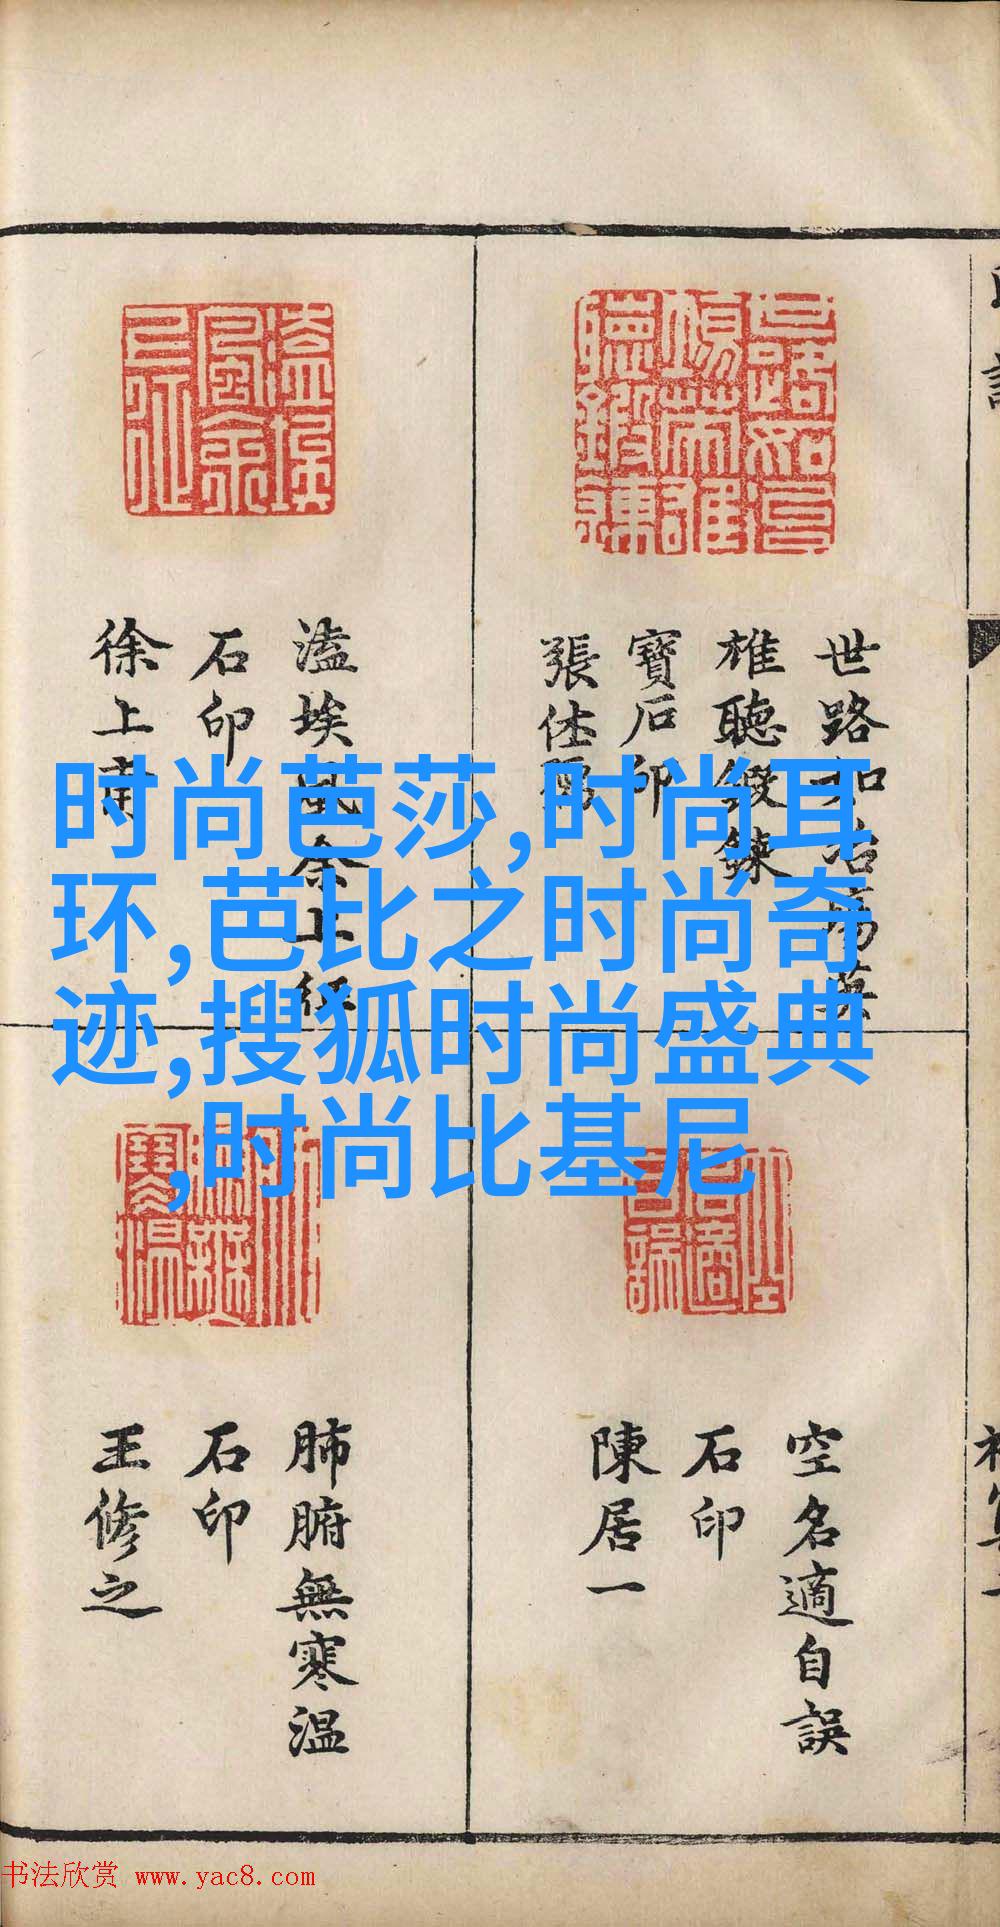 时尚芭莎,时尚耳
环,芭比之时尚奇
迹,搜狐时尚盛典
,时尚比基尼
世路如冶陽藎
雄聽鍛鍊
寶石印
張仕
溘埃風余上征
石印
徐上南
空名適自誤
石印
陳居一
肺腑無寒温
石印
王修之
书法欣赏 www.yac8.com